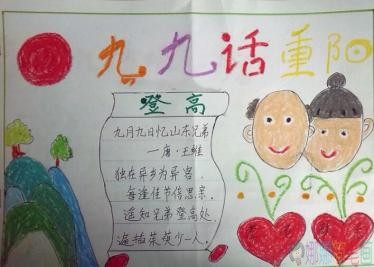 九九话重阳
登高
九月九日忆山东兄弟
一唐·王维
独在异乡为异客,
每逢佳节倍思亲,
遥知兄弟登高处,
遍插茱萸少一人。